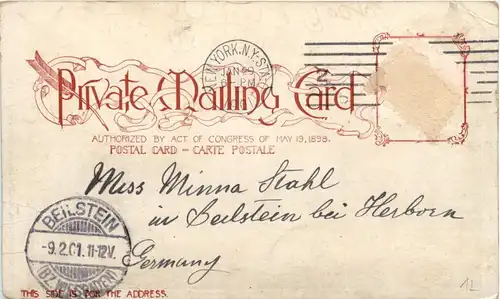 NEW YORK, N.Y. STA.
JAN
PM
2
Private Mailing Card
AUTHORIZED BY ACT OF CONGRESS OF MAY 19, 1898.
POSTAL CARD – CARTE POSTALE
Miss Minna Stahl
in Beilstein bei Herborn
Germany
BEILSTEIN
-9.2.01.11-12V.
THIS SIDE IS FOR THE ADDRESS.
12